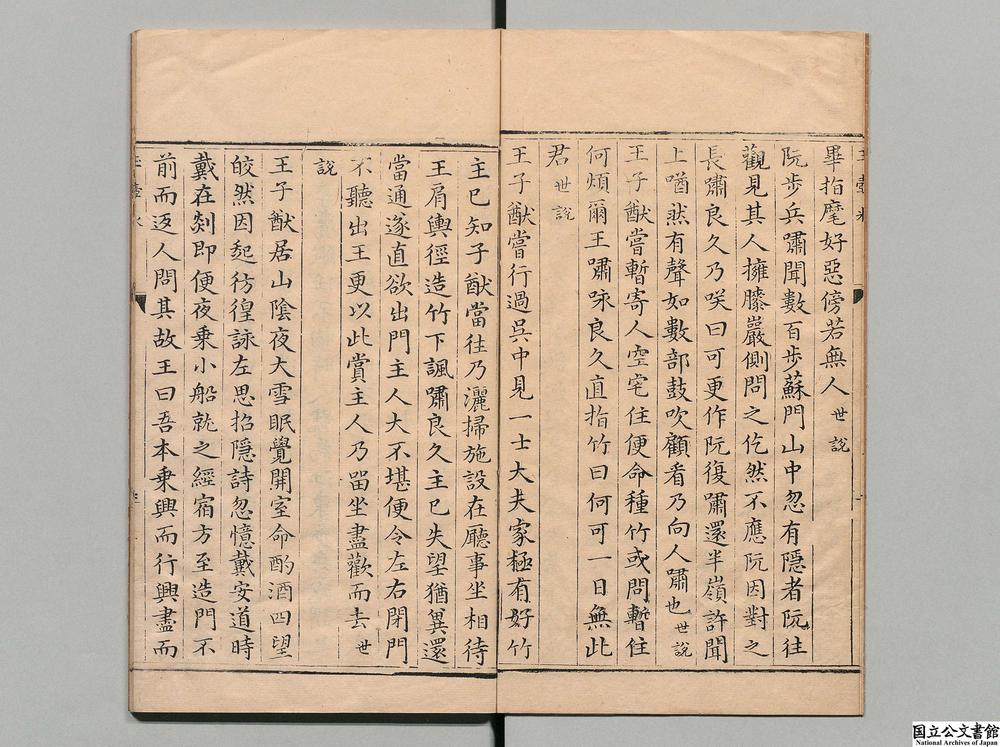 畢指麾好惡傍若無人世說
阮步兵嘯聞數百步蘇門山中忽有隱者阮往
觀見其人擁膝巖側問之仡然不應阮因對之
長嘯良久乃咲曰可更作阮復嘯還半嶺許聞
上㗜然有聲如數部鼓吹顧看乃向人嘯也世說
王子猷嘗暫寄人空宅住便命種竹或問暫住
何煩爾王嘯咏良久直指竹曰何可一日無此
君世說
王子猷嘗行過吳中見一士大夫家極有好竹
主已知子猷當往乃灑掃施設在廳事坐相待
王肩輿徑造竹下諷嘯良久主已失望猶兾還
當通遂直欲出門主人大不堪便令左右閉門
不聽出王更以此賞主人乃留坐盡歡而去世
說
王子猷居山陰夜大雪眠覺開室命酌酒四望
皎然因起彷徨詠左思招隱詩忽憶戴安道時
戴在剡即便夜乗小船就之經宿方至造門不
前而返人問其故王曰吾本乗興而行興盡而
国立公文書館
National Archives of Japan